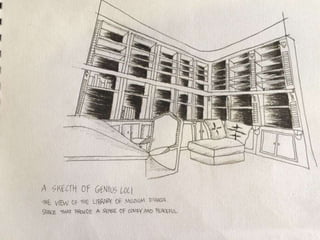 A SKECTH OF GENIUS LOCI
THE VIEW OF THE LIBRARY OF
SPACE THAT PROVIDE A SENSE OF COMFY AND PEACEFUL